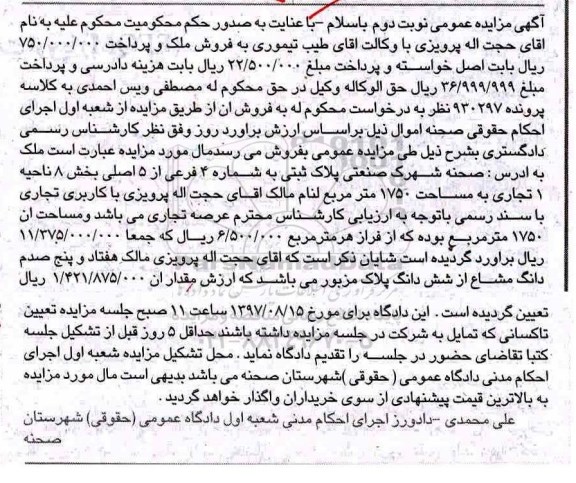 آگهی مزایده عمومی نوبت دوم باسلام -با عنایت به صدور حکم محکومیت محکوم علیه به نام
اقای حجت اله پرویزی با وکالت اقای طیب تیموری به فروش ملک و پرداخت ۷۵۰/۰۰۰/۰۰۰
ریال بابت اصل خواسته و پرداخت مبلغ ۲۲/۵۰۰/۰۰۰ ریال بابت هزینه دادرسی و پرداخت
مبلغ ۳۶/۹۹۹/۹۹۹ ریال حق الوکاله وکیل در حق محکوم له مصطفی ویس احمدی به کلاسه
پرونده ۹۳۰۲۹۷ نظر به درخواست محکوم له به فروش ان از طریق مزایده از شعبه اول اجرای
احکام حقوقی صحنه اموال ذیل براساس ارزش براورد روز وفق نظر کارشناس رسمی
دادگستری بشرح ذیل طی مزایده عمومی بفروش می رسدمال مورد مزایده عبارت است ملک
به ادرس : صحنه شهرک صنعتی پلاک ثبتی به شماره ۴ فرعی از ۵ اصلی بخش ۸ ناحیه
۱ تجاری به مساحت ۱۷۵۰ متر مربع لنام مالک اقای حجت اله پرویزی با کاربری تجاری
با سند رسمی باتوجه به ارزیابی کارشناس محترم عرصه تجاری می باشد ومساحت ان
۱۷۵۰ مترمربع بوده که از فراز هرمترمربع ۶/۵۰۰/۰۰۰ ریال که جمعا ۱۱/۳۷۵/۰۰۰/۰۰۰
ریال براورد گردیده است شایان ذکر است که اقای حجت اله پرویزی مالک هفتاد و پنج صدم
دانگ مشاع از شش دانگ پلاک مزبور می باشد که ارزش مقدار ان ۱/۴۲۱/۸۷۵/۰۰۰ ریال
تعیین گردیده است . این دادگاه برای مورخ ۱۳۹۷/۰۸/۱۵ ساعت ۱۱ صبح جلسه مزایده تعیین
تاکسانی که تمایل به شرکت در جلسه مزایده داشته باشند حداقل ۵ روز قبل از تشکیل جلسه
کتبا تقاضای حضور در جلسه را تقدیم دادگاه نماید . محل تشکیل مزایده شعبه اول اجرای
احکام مدنی دادگاه عمومی ( حقوقی )شهرستان صحنه می باشد بدیهی است مال مورد مزایده
به بالاترین قیمت پیشنهادی از سوی خریداران واگذار خواهد گردید .
علی محمدی -دادورز اجرای احکام مدنی شعبه اول دادگاه عمومی (حقوقی) شهرستان
صحنه